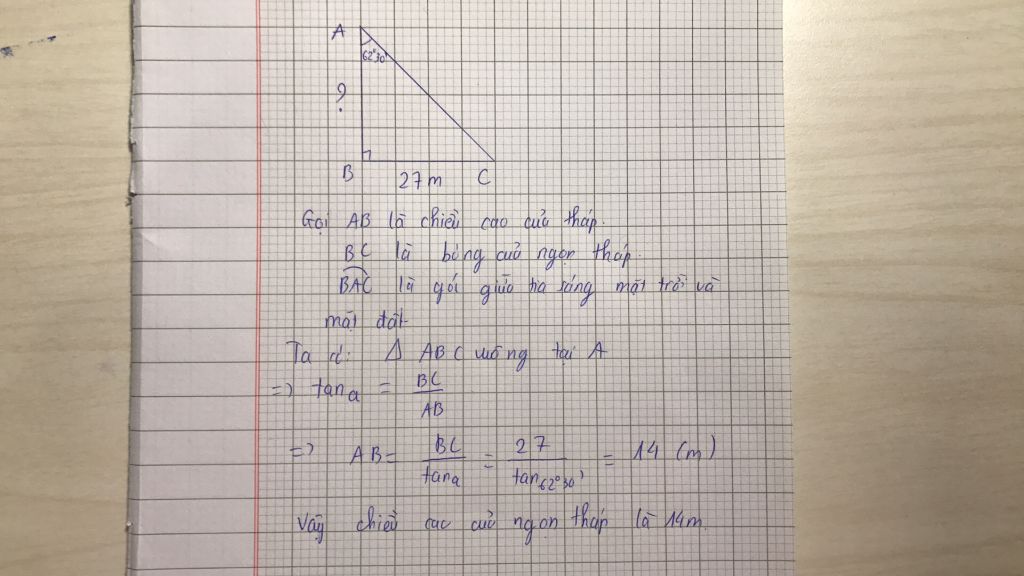 A
62°30'
?
B
27 m
C
Gọi AB là chiều cao của tháp.
BC là bóng của ngọn tháp.
BAC là góc giữa tia sáng mặt trời và
mặt đất
Ta có: Δ ABC vuông tại A
=> tan a = BC/AB
=> AB = BC/tan a = 27/tan 62°30' = 14 (m)
Vậy chiều cao của ngọn tháp là 14m.